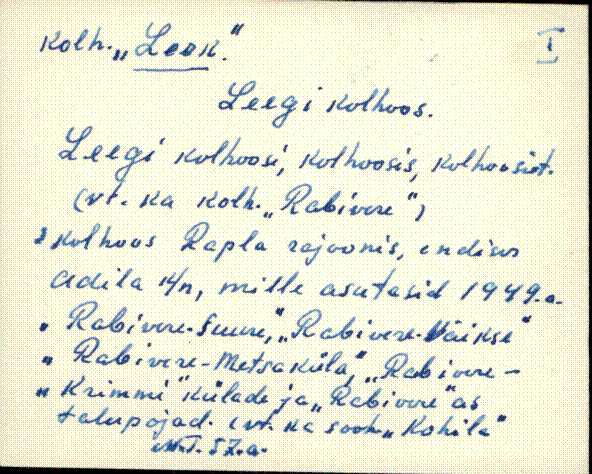 Kolh. „Leek."
I
Leegi kolhoos.
Leegi kolhoosi, kolhoosis, kolhoosist.
(vt. ka kolh. „Rabivere")
kolhoos Rapla rajoonis, endises
Adila k/n, mille asutasid 1949.a.
„Rabivere-Suure," „Rabivere-Väikse"
„Rabivere-Metsaküla," „Rabivere-
„Krimmi" külade ja „Rabivere" as
talupojad. (vt. ka sooh. „Kohila"
57.a.